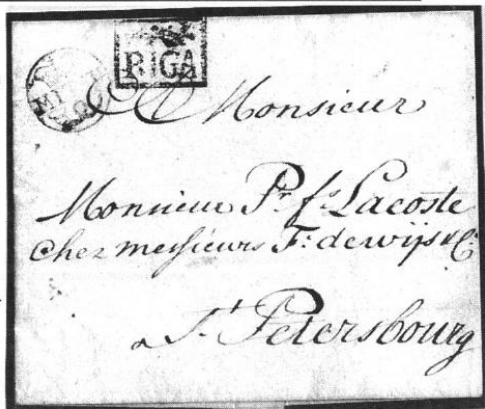 RIGA
A Monsieur
Monsieur Pr. fs. Lacoste
chez messieurs F: dewijs & C:
a St Petersbourg